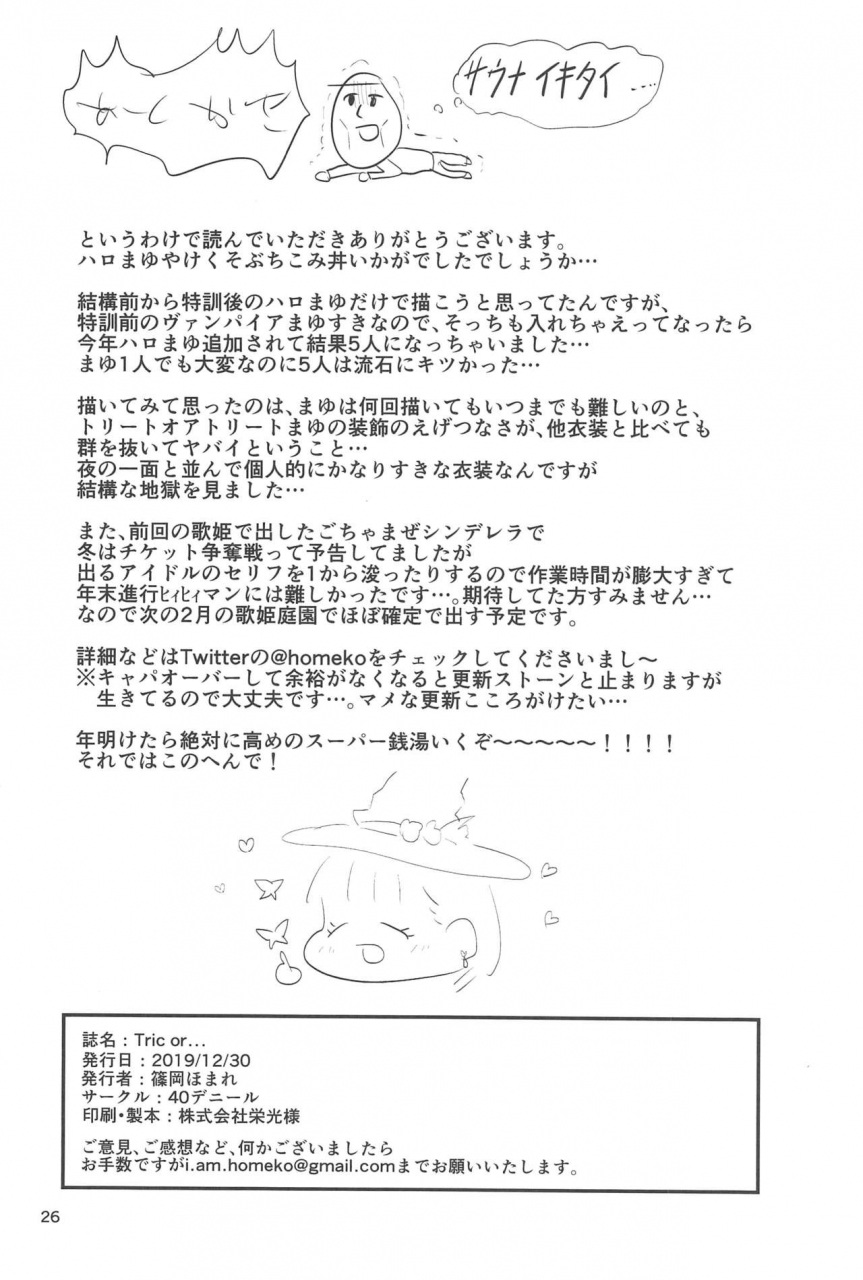 あとがき
サウナイキタイ....
というわけで読んでいただきありがとうございます。
ハロまゆやけくそぶちこみ丼いかがでしたでしょうか…
結構前から特訓後のハロまゆだけで描こうと思ってたんですが、
特訓前のヴァンパイアまゆすきなので、そっちも入れちゃえってなったら
今年ハロまゆ追加されて結果5人になっちゃいました…
まゆ1人でも大変なのに5人は流石にキツかった…
描いてみて思ったのは、まゆは何回描いてもいつまでも難しいのと、
トリートオアトリートまゆの装飾のえげつなさが、他衣装と比べても
群を抜いてヤバイということ…
夜の一面と並んで個人的にかなりすきな衣装なんですが
結構な地獄を見ました…
また、前回の歌姫で出したごちゃまぜシンデレラで
冬はチケット争奪戦って予告してましたが
出るアイドルのセリフを1から浚ったりするので作業時間が膨大すぎて
年末進行ﾋｨﾋｨマンには難しかったです…。期待してた方すみません…
なので次の2月の歌姫庭園でほぼ確定で出す予定です。
詳細などはTwitterの@homekoをチェックしてくださいまし～
※キャパオーバーして余裕がなくなると更新ストーンと止まりますが
生きてるので大丈夫です…。マメな更新こころがけたい…
年明けたら絶対に高めのスーパー銭湯いくぞ～～～～～！！！！
それではこのへんで！
誌名：Tric or…
発行日：2019/12/30
発行者：篠岡ほまれ
サークル：40デニール
印刷・製本：株式会社栄光様
ご意見、ご感想など、何かございましたら
お手数ですがi.am.homeko@gmail.comまでお願いいたします。
26